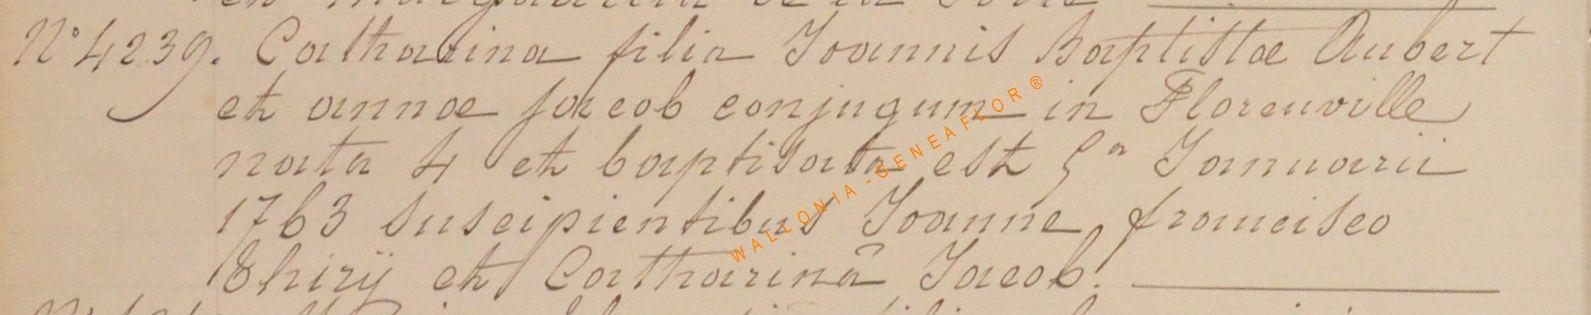 N° 4239. Catharina filia Joannis Baptistae Aubert
et annae jacob conjugum in Florenville
nata 4 et baptisata est 5a Januarii
1763 suscipientibus Joanne francisco
Thirÿ et Catharinâ Jacob.
WALLONIA-GENEAFLOR®